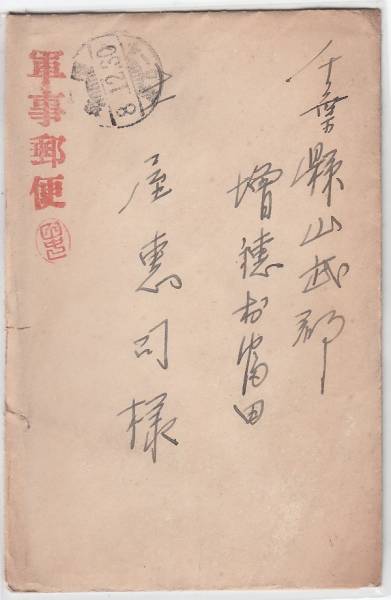 千葉縣山武郡
増穂村富田
土屋惠司様
軍事郵便
8.12.30